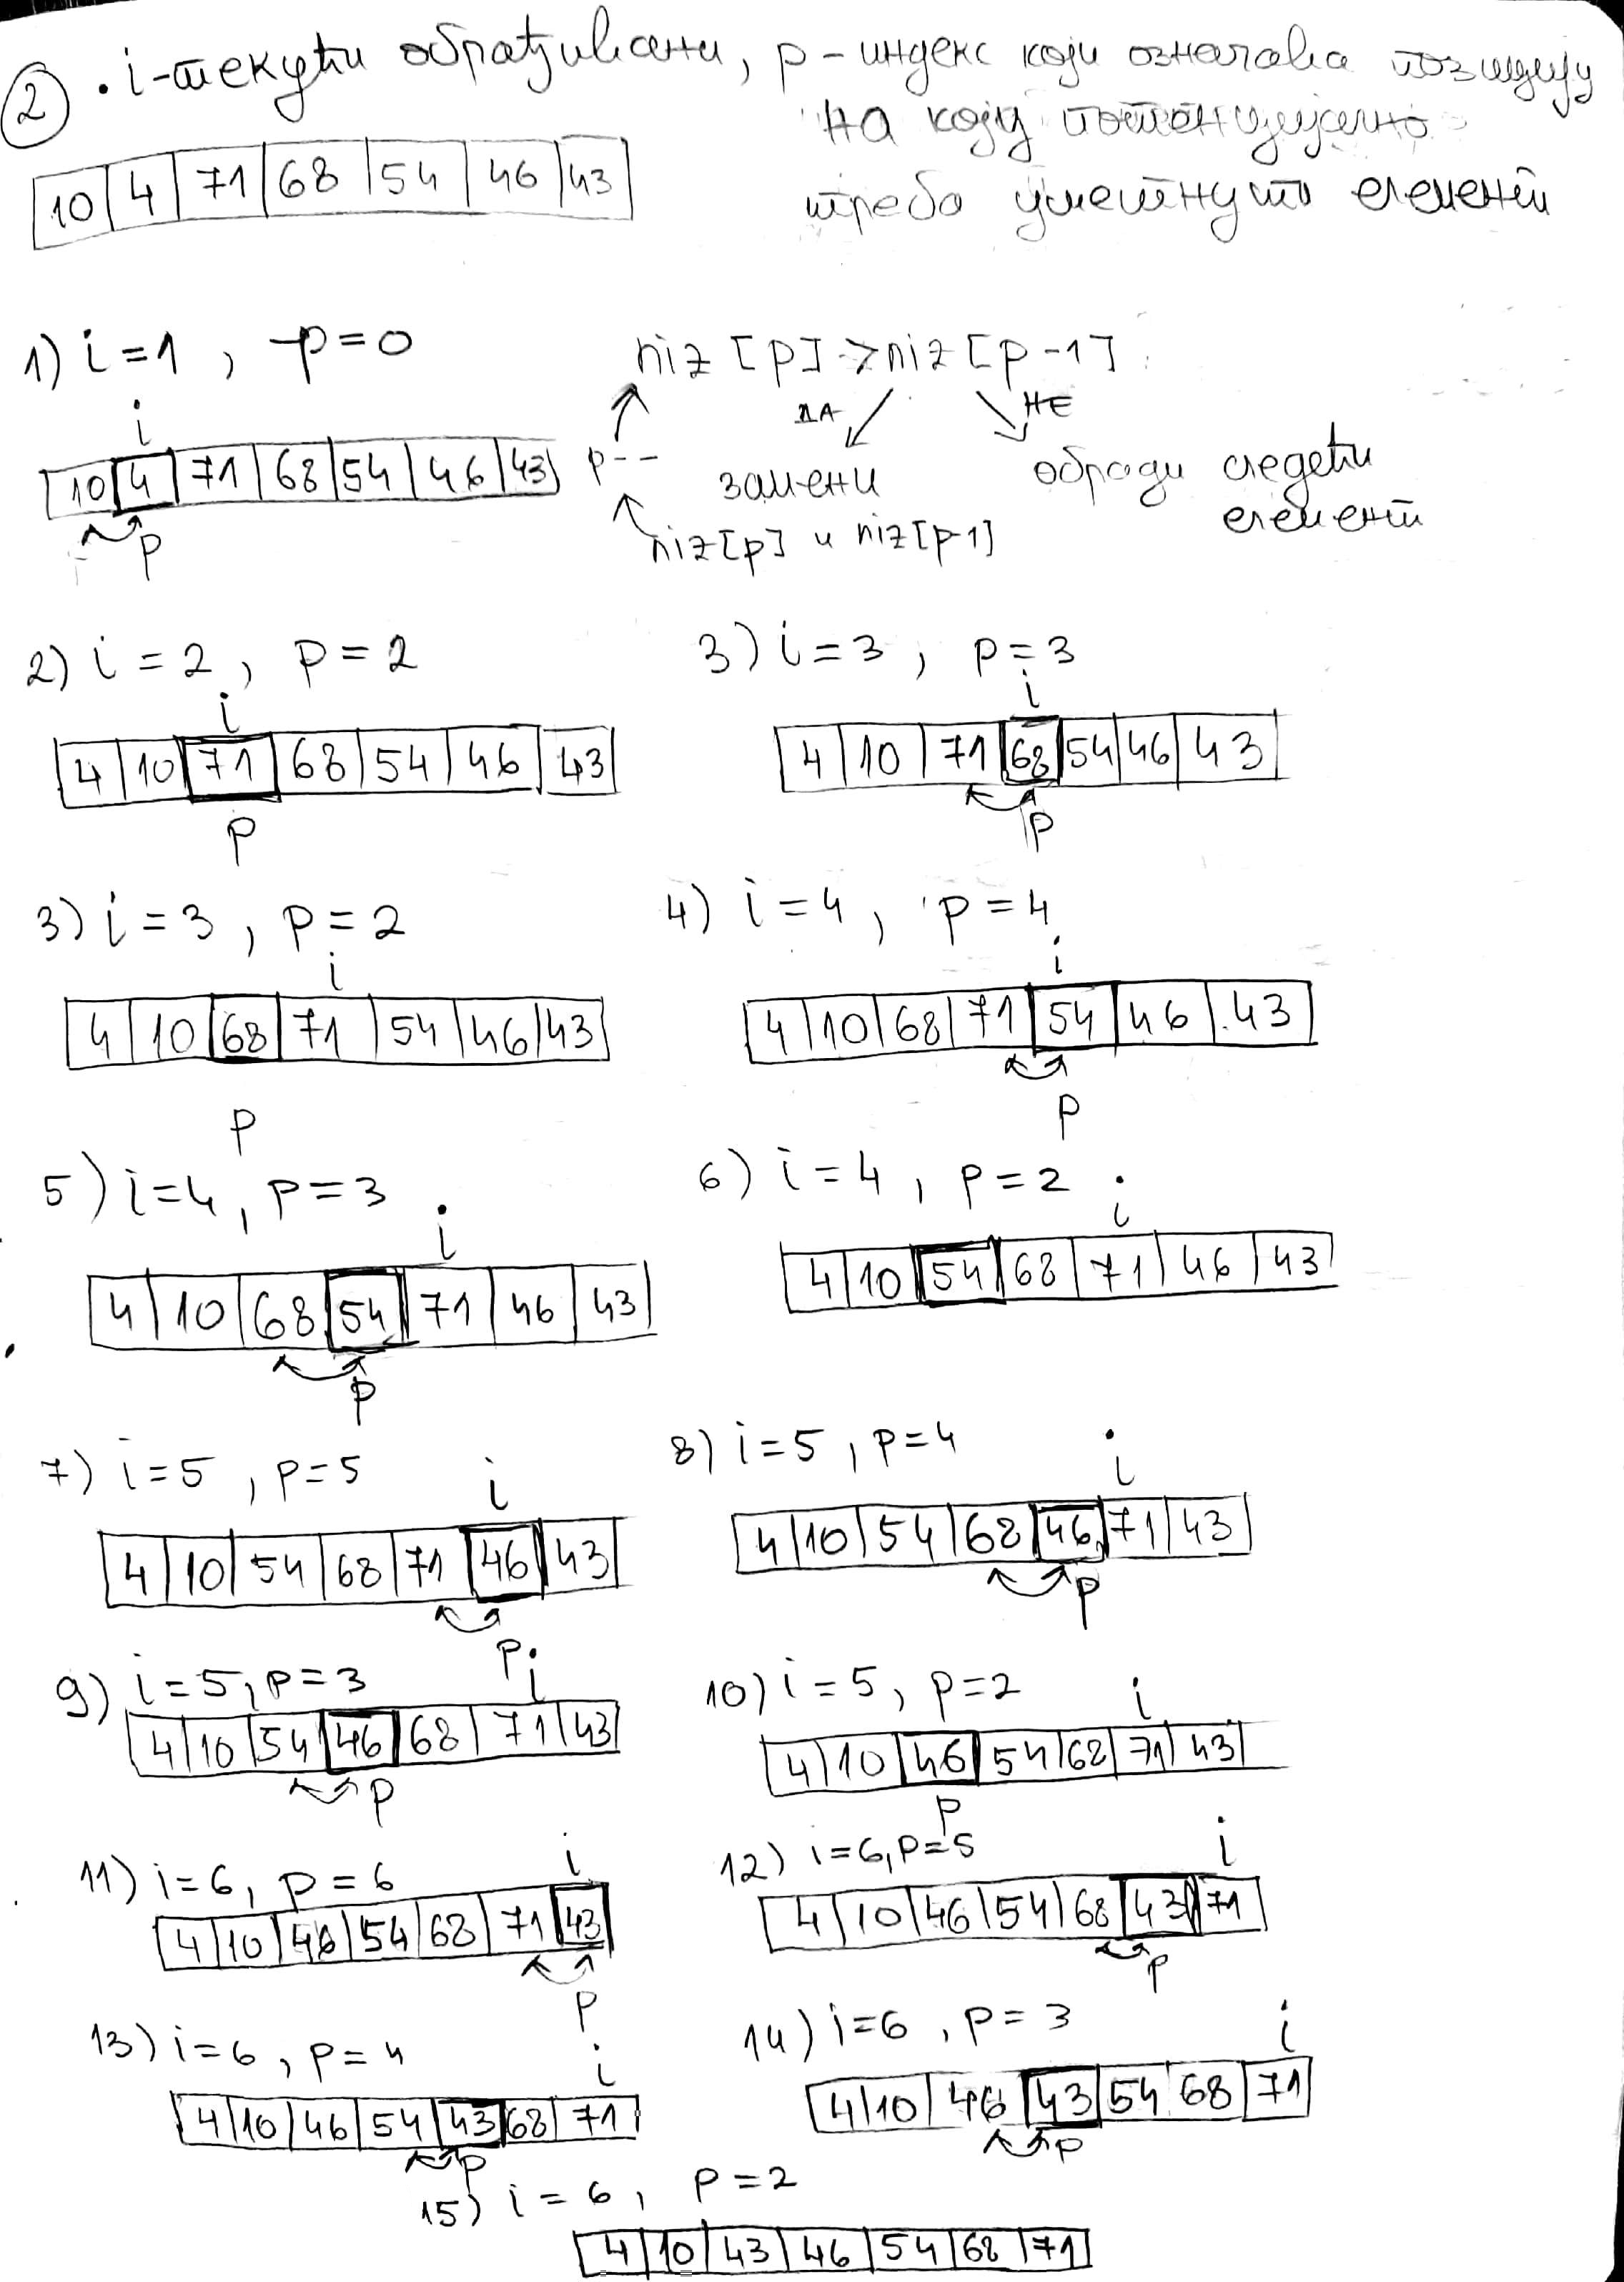 2 • i-текући обрађивани, p-индекс који означава позицију
на коју потенцијално
треба уметнути елемент
10 4 71 68 54 46 43
1) i=1, p=0
niz[p]>niz[p-1]
ДА НЕ
i
10 4 71 68 54 46 43
p--
замени
обради следећи
елемент
p
niz[p] и niz[p-1]
2) i=2, p=2
i
4 10 71 68 54 46 43
p
3) i=3, p=3
i
4 10 71 68 54 46 43
p
3) i=3, p=2
i
4 10 68 71 54 46 43
p
4) i=4, p=4
i
4 10 68 71 54 46 43
p
5) i=4, p=3
i
4 10 68 54 71 46 43
p
6) i=4, p=2
i
4 10 54 68 71 46 43
7) i=5, p=5
i
4 10 54 68 71 46 43
p
8) i=5, p=4
i
4 10 54 68 46 71 43
p
9) i=5, p=3
i
4 10 54 46 68 71 43
p
10) i=5, p=2
i
4 10 46 54 68 71 43
p
11) i=6, p=6
i
4 10 46 54 68 71 43
p
12) i=6, p=5
i
4 10 46 54 68 43 71
p
13) i=6, p=4
i
4 10 46 54 43 68 71
p
14) i=6, p=3
i
4 10 46 43 54 68 71
p
15) i=6, p=2
4 10 43 46 54 68 71